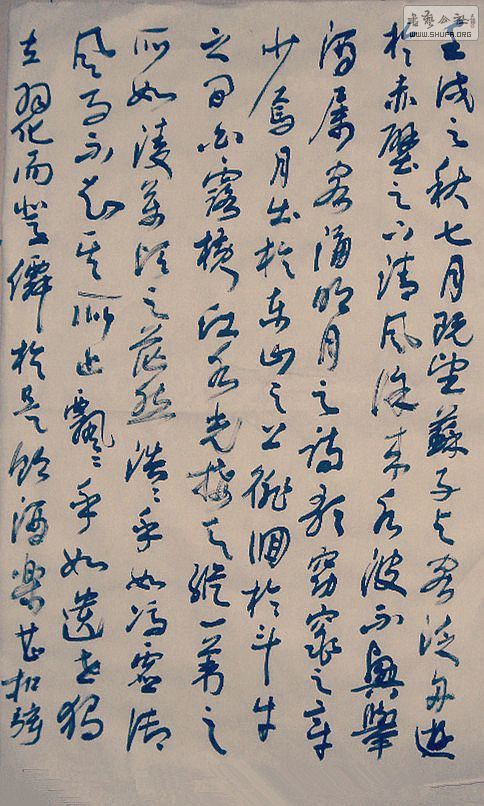 壬戌之秋七月既望蘇子与客泛舟遊
於赤壁之下清风徐来水波不興舉
酒属客誦明月之詩歌窈窕之章
少焉月出於东山之上徘徊於斗牛
之间白露横江水光接天縱一苇之
所如凌萬顷之茫然浩〻乎如冯虚御
风而不知其所止飄〻乎如遗世独
立羽化而登僊於是饮酒樂甚扣舷
书艺公社
WWW.SHUFA.ORG